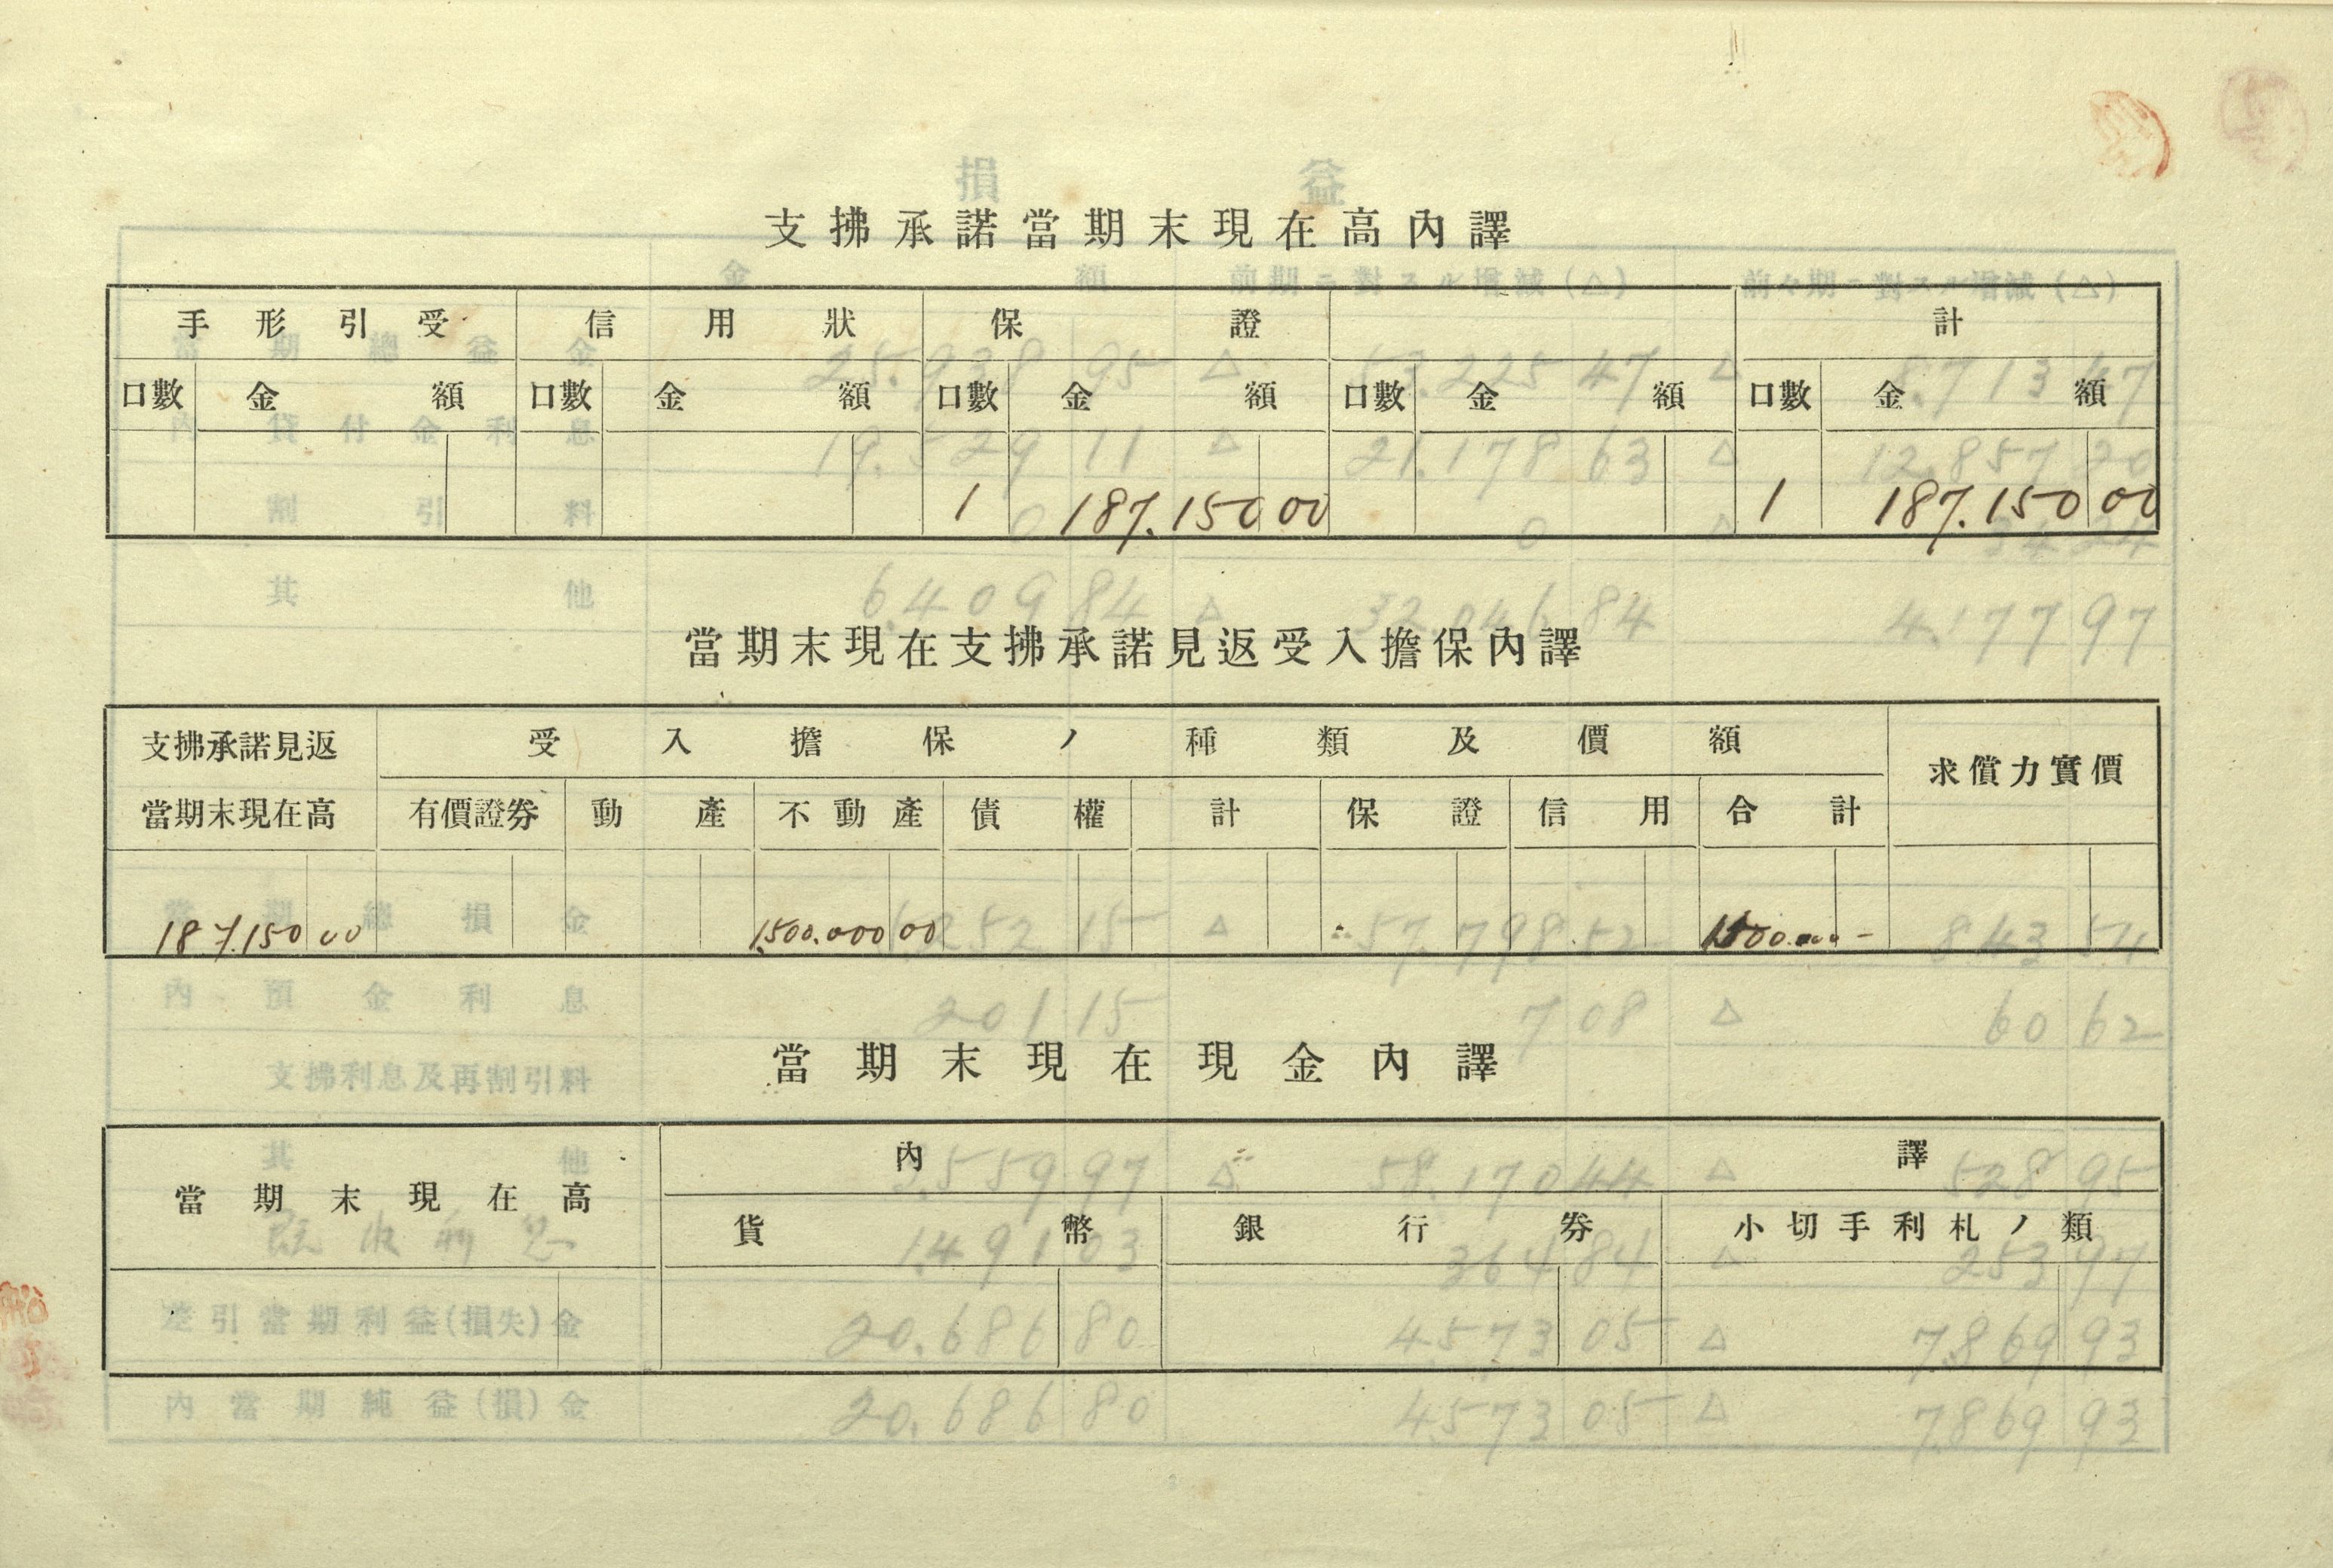 支拂承諾當期末現在高內譯
手形引受 信用狀 保證 計
口數 金額 口數 金額 口數 金額 口數 金額 口數 金額
1 187.150 00 1 187.150 00
當期末現在支拂承諾見返受入擔保內譯
支拂承諾見返 受入擔保ノ種類及價額 求償力實價
當期末現在高 有價證券 動產 不動產 債權 計 保證 信用 合計
187.150 00 1.500.000 00 1.500.000 -
當期末現在現金內譯
當期末現在高 內譯
貨幣 銀行券 小切手利札ノ類
損益
金額 前期ニ對スル增減(△) 前々期ニ對スル增減(△)
當期總益金 25.938 95 △ 53.225 47 △ 8.713 47
內貸付金利息 19.529 11 △ 21.178 63 △ 12.857 20
割引料 0 0 △ 34 24
其他 6.409 84 △ 32.046 84 4.177 97
當期總損金 5.252 15 △ 57.798 52 843 54
內預金利息 201 15 7 08 △ 60 62
支拂利息及再割引料
其他 3.559 97 △ 58.170 44 △ 528 95
1.491 03 364 84 △ 253 97
差引當期利益(損失)金 20.686 80 4.573 05 △ 7.869 93
內當期純益(損)金 20.686 80 4.573 05 △ 7.869 93